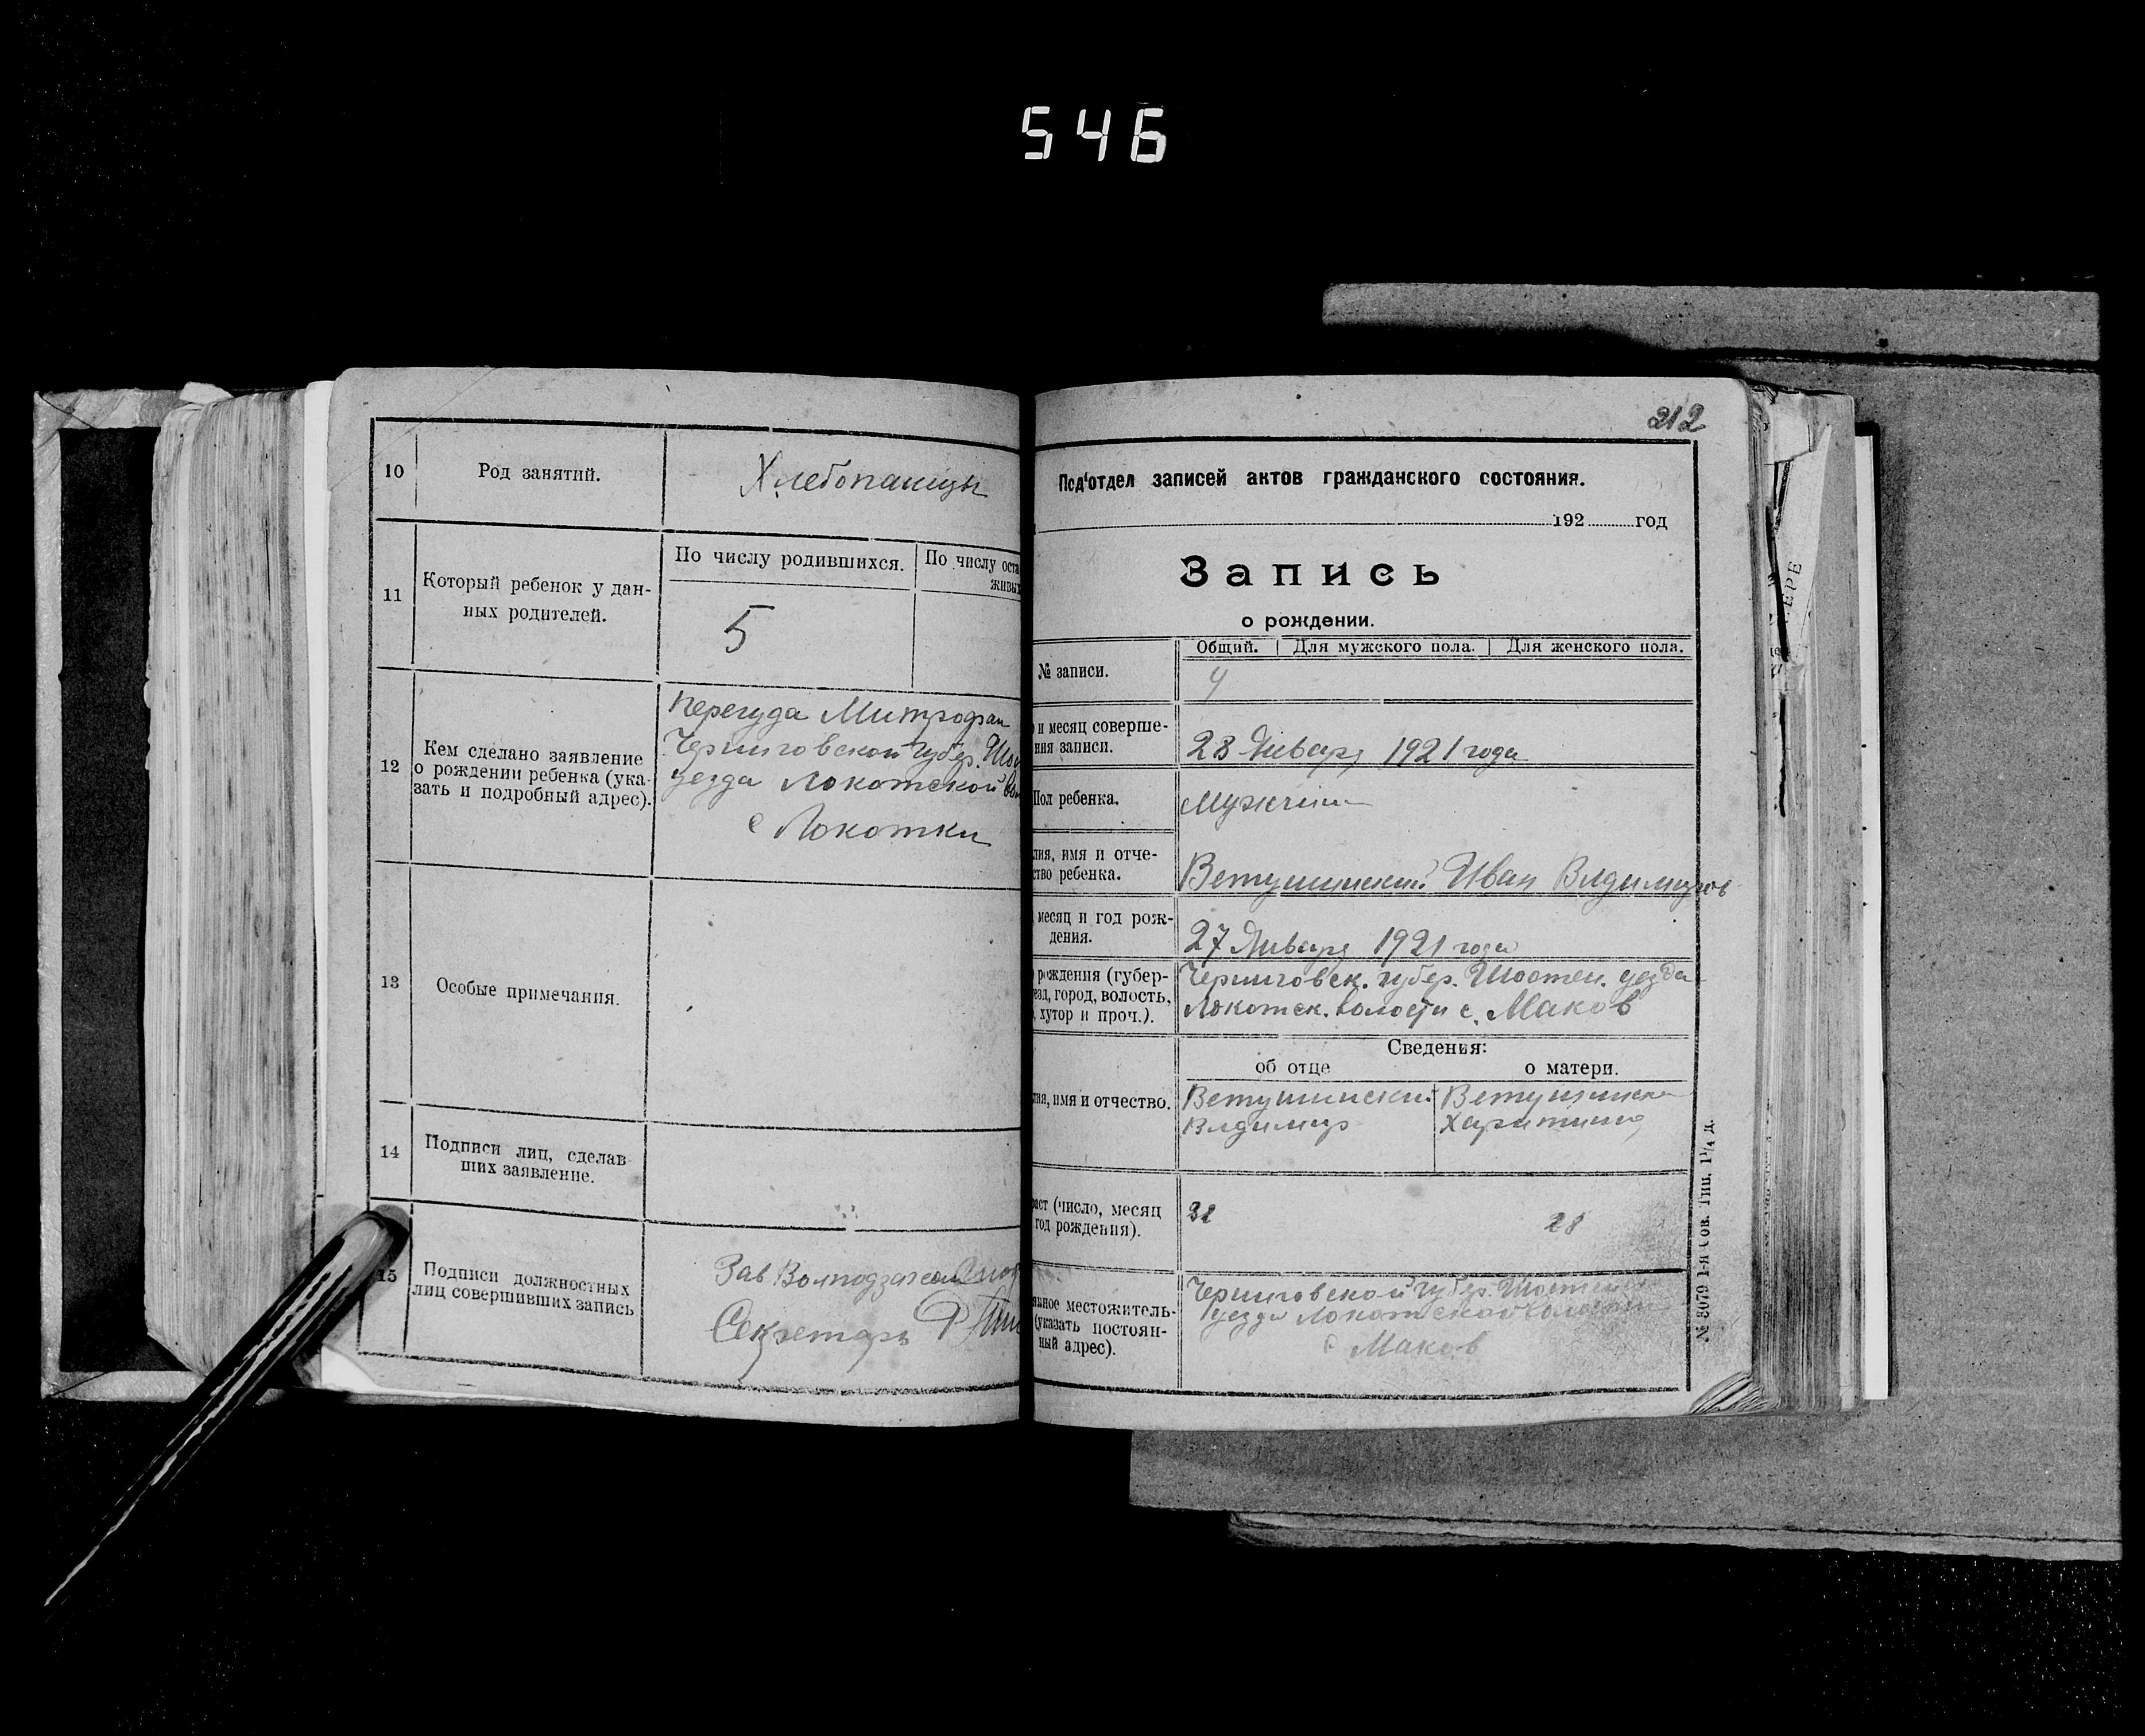 546
10
Род занятий.
Хлебопашцы
11
Который ребенок у дан-
ных родителей.
По числу родившихся.
По числу оста
живых
5
12
Кем сделано заявление
о рождении ребенка (ука-
зать и подробный адрес).
Перегуда Митрофан
Черниговской губер. Шос
уезда Локотской вол
с Локотки
13
Особые примечания.
14
Подписи лиц, сделав
ших заявление.
15
Подписи должностных
лиц совершивших запись
Зав
Секретарь
212
Под'отдел записей актов гражданского состояния.
192 год
Запись
о рождении.
Общий. Для мужского пола. Для женского пола.
№ записи.
4
и месяц соверше-
ния записи.
28 Январ 1921 года
Пол ребенка.
Мужчин
лия, имя и отче-
ство ребенка.
Ветушинский Иван Влдимиров
месяц и год рож-
дения.
27 Январ 1921 года
рождения (губер-
езд, город, волость,
, хутор и проч.).
Черниговск. губер. Шостен. уезда
Локотск. волости с. Маков
Сведения:
об отце
о матери.
ия, имя и отчество.
Ветушинский
Влдимир
Ветушинска
Харитина
раст (число, месяц
год рождения).
32
28
янное местожитель-
(указать постоян-
ный адрес).
Черниговской губер. Шостен
уезда Локотской волости
с Маков
№ 8079 1-я Сов. Тип. 1¼ д.